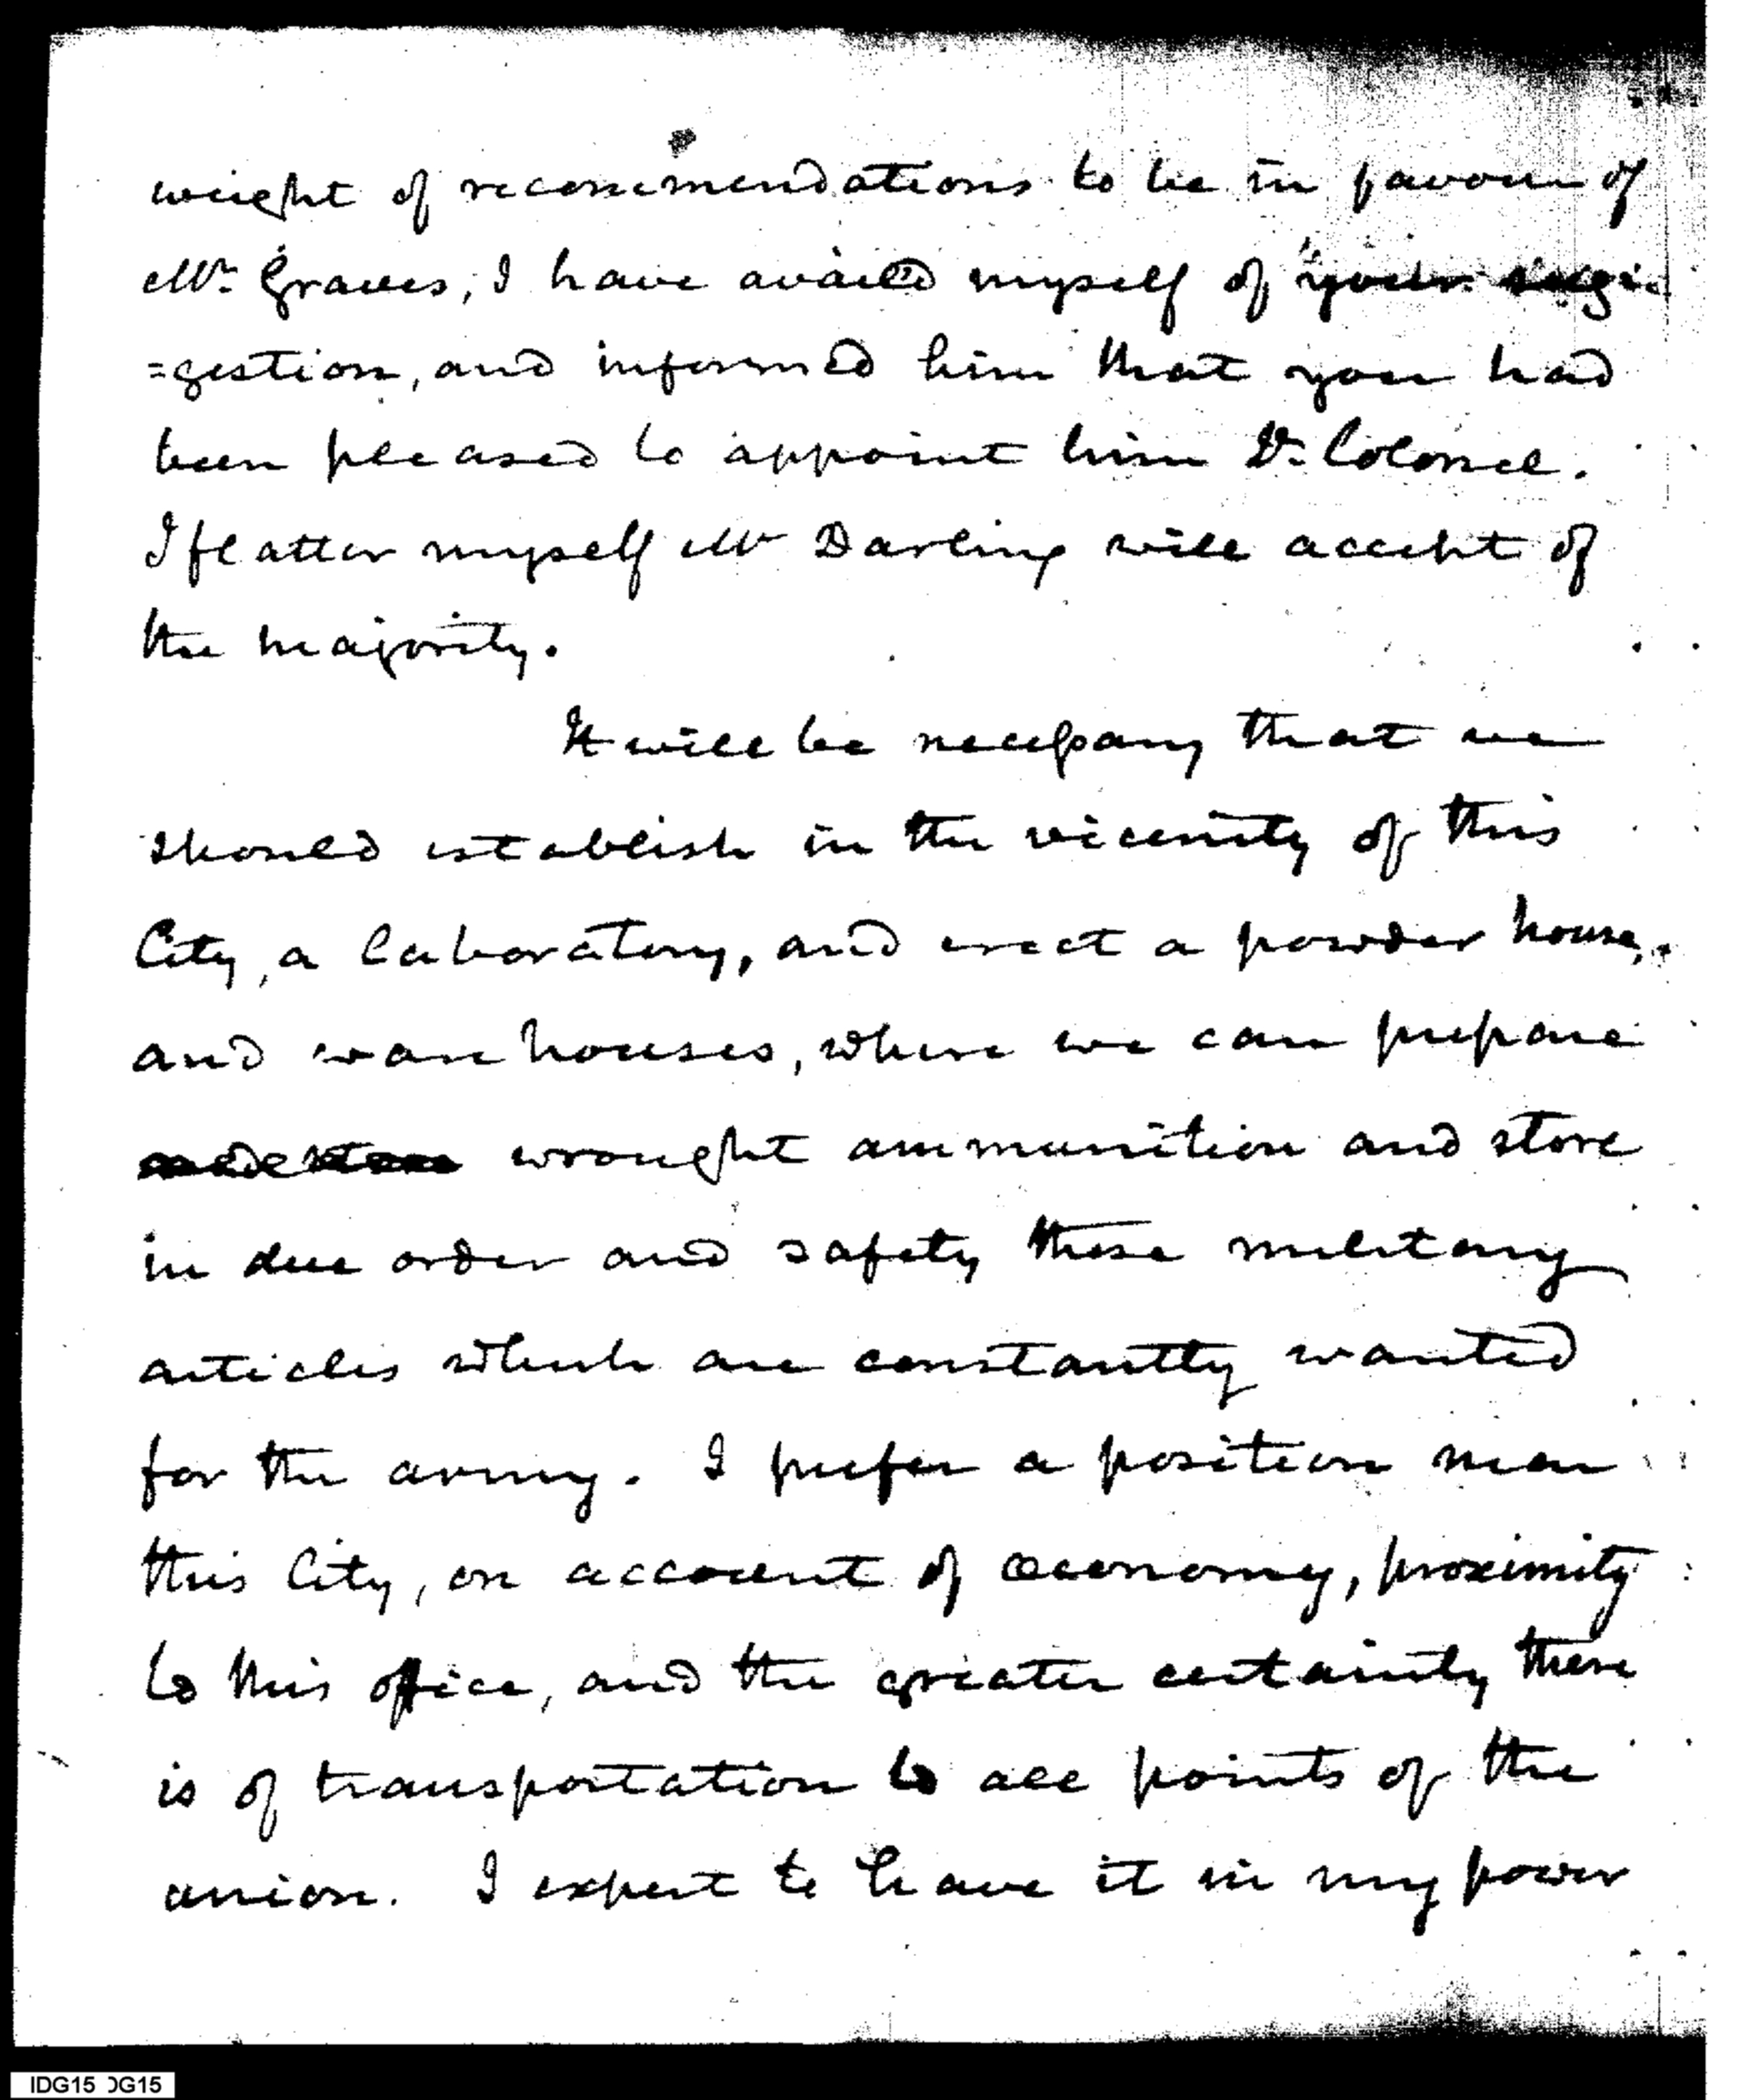 weight of recommendations to be in favour of
Mr. Graves, I have availed myself of your sug-
=gestion, and informed him that you had
been pleased to appoint him Lt. Colonel.
I flatter myself Mr Darling will accept of
the majority.
It will be necessary that we
should establish in the vicinity of this
City, a laboratory, and erect a powder house,
and warehouses, where we can prepare
wrought ammunition and store
in due order and safety those military
articles which are constantly wanted
for the army. I prefer a position near
this City, on account of oeconomy, proximity
to this office, and the greater certainty there
is of transportation to all points of the
union. I expect to have it in my power
IDG15 DG15